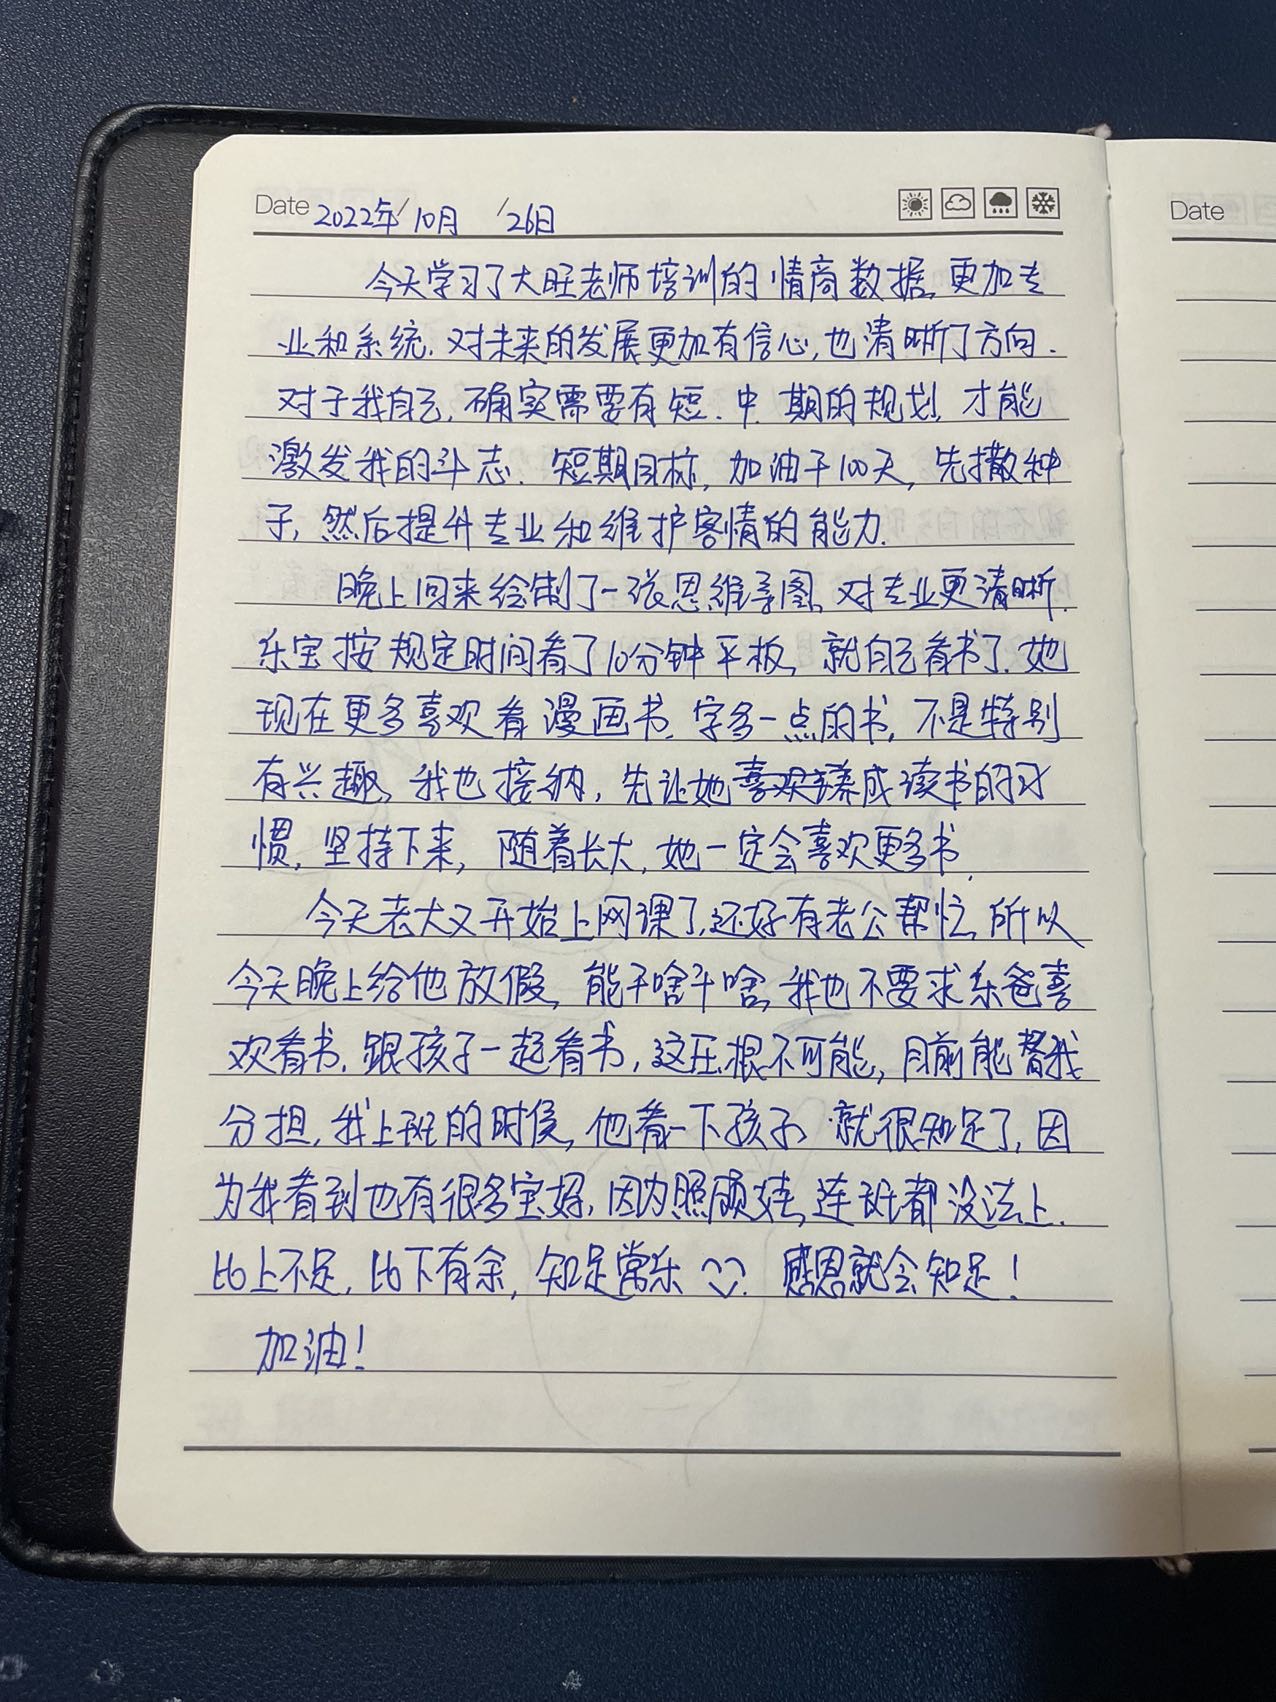 Date 2022年/10月 /26日
Date
今天学习了大旺老师培训的情商数据,更加专
业和系统.对未来的发展更加有信心,也清晰了方向.
对于我自己,确实需要有短.中.期的规划,才能
激发我的斗志.短期目标,加油干100天,先撒种
子,然后提升专业和维护客情的能力.
晚上回来绘制了一张思维导图,对专业更清晰.
乐宝按规定时间看了10分钟平板,就自己看书了.她
现在更多喜欢看漫画书.字多一点的书,不是特别
有兴趣,我也接纳,先让她养成读书的习
惯,坚持下来,随着长大,她一定会喜欢更多书.
今天老大又开始上网课了,还好有老公帮忙,所以
今天晚上给他放假,能干啥干啥,我也不要求乐爸喜
欢看书.跟孩子一起看书,这压根不可能,目前能帮我
分担,我上班的时候,他看一下孩子就很知足了,因
为我看到也有很多宝妈,因为照顾娃,连班都没法上.
比上不足,比下有余,知足常乐.感恩就会知足!
加油!